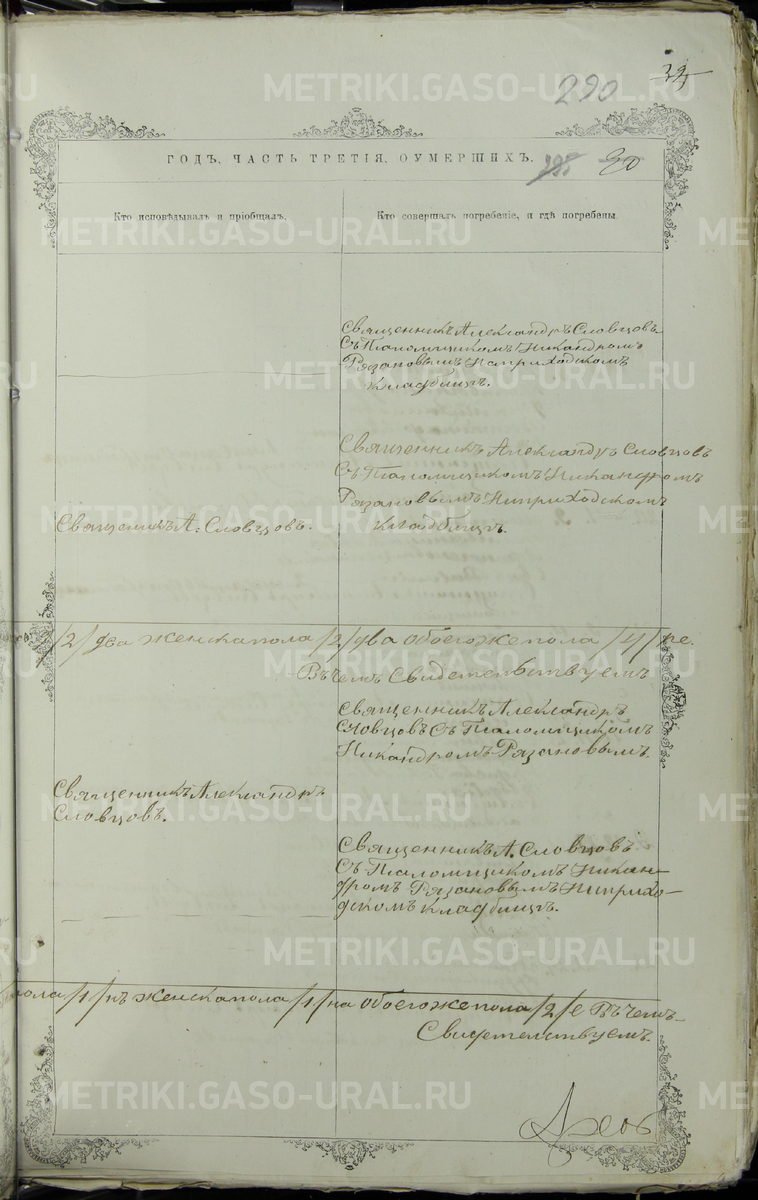 32
290
ГОДЪ, ЧАСТЬ ТРЕТІЯ, ОУМЕРШИХЪ.
30
Кто исповѣдывалъ и пріобщалъ.
Кто совершалъ погребеніе, и гдѣ погребены.
Священникъ Александръ Словцовъ
Съ Псаломщикомъ Никандромъ
Рязановымъ На приходскомъ
Кладбищѣ.
Священникъ Александръ Словцовъ
Съ Псаломщикомъ Никандромъ
Рязановымъ На приходскомъ
Кладбищѣ.
Священикъ А. Словцовъ.
/2/ два женска пола /2/ два обоего же пола /4/ ре.
Въ чемъ Свидетельствуемъ
Священникъ Александръ
Словцовъ Съ Псаломщикомъ
Никандромъ Рязановымъ.
Священникъ Александръ
Словцовъ.
Священникъ А. Словцовъ
Съ Псаломщикомъ Никан-
дромъ Рязановымъ На прихо-
дскомъ кладбищѣ.
пола /1/ нъ женска пола /1/ на обоего же пола /2/ е Въ чемъ
Свидетельствуемъ.
METRIKI.GASO-URAL.RU